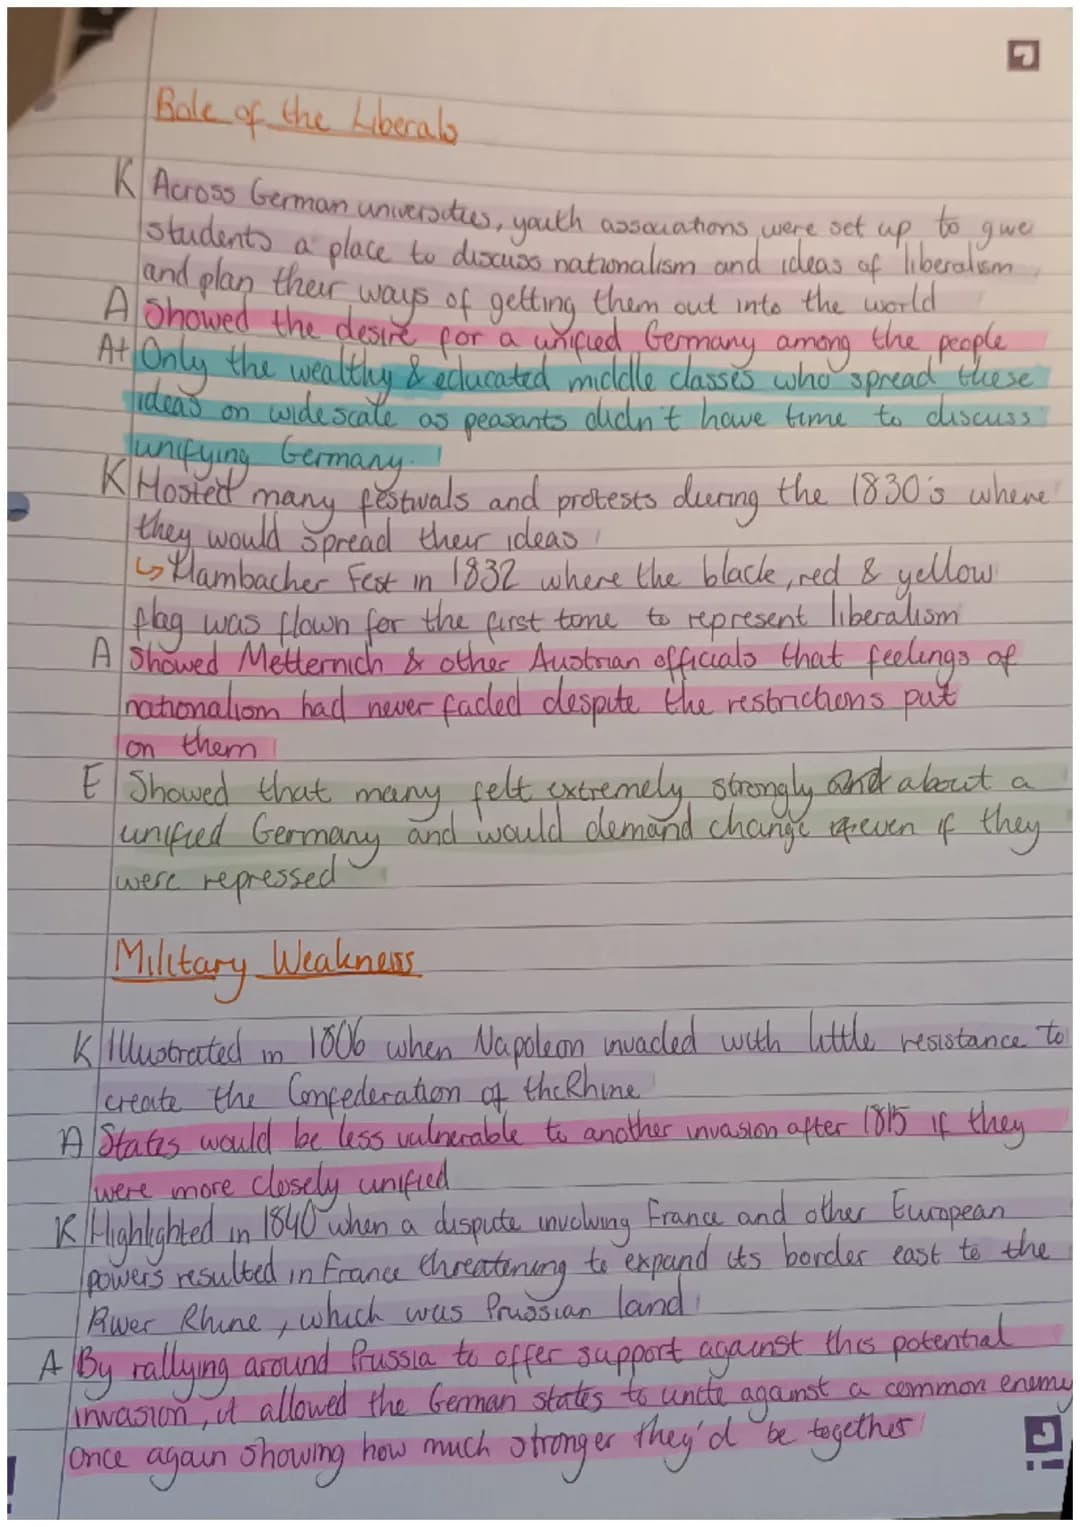 Role of the Liberals
K Across German universities, youth associations were set up to give
students a place to discuss nationalism and ideas of liberalism
and plan their ways of getting them out into the world
A Showed the desire for a unified Germany among the people
A+ Only the wealthy & educated middle classes who spread these
ideas on widescale as peasants didn't have time to discuss
unifying Germany.
K Hosted many festivals and protests during the 1830's where
they would spread their ideas
↳ Hambacher Fest in 1832 where the black, red & yellow
flag was flown for the first time to represent liberalism
A Showed Metternich & other Austrian officials that feelings of
nationalism had never faded despite the restrictions put
on them
E Showed that many felt extremely strongly about a
unified Germany and would demand change even if they
were repressed
Military Weakness
K Illustrated in 1806 when Napoleon invaded with little resistance to
create the Confederation of the Rhine
A States would be less vulnerable to another invasion after 1815 if they
were more closely unified
K Highlighted in 1840 when a dispute involving France and other European
powers resulted in France threatening to expand its border east to the
River Rhine, which was Prussian land
A By rallying around Prussia to offer support against this potential
invasion, it allowed the German states to unite against a common enemy
once again showing how much stronger they'd be together